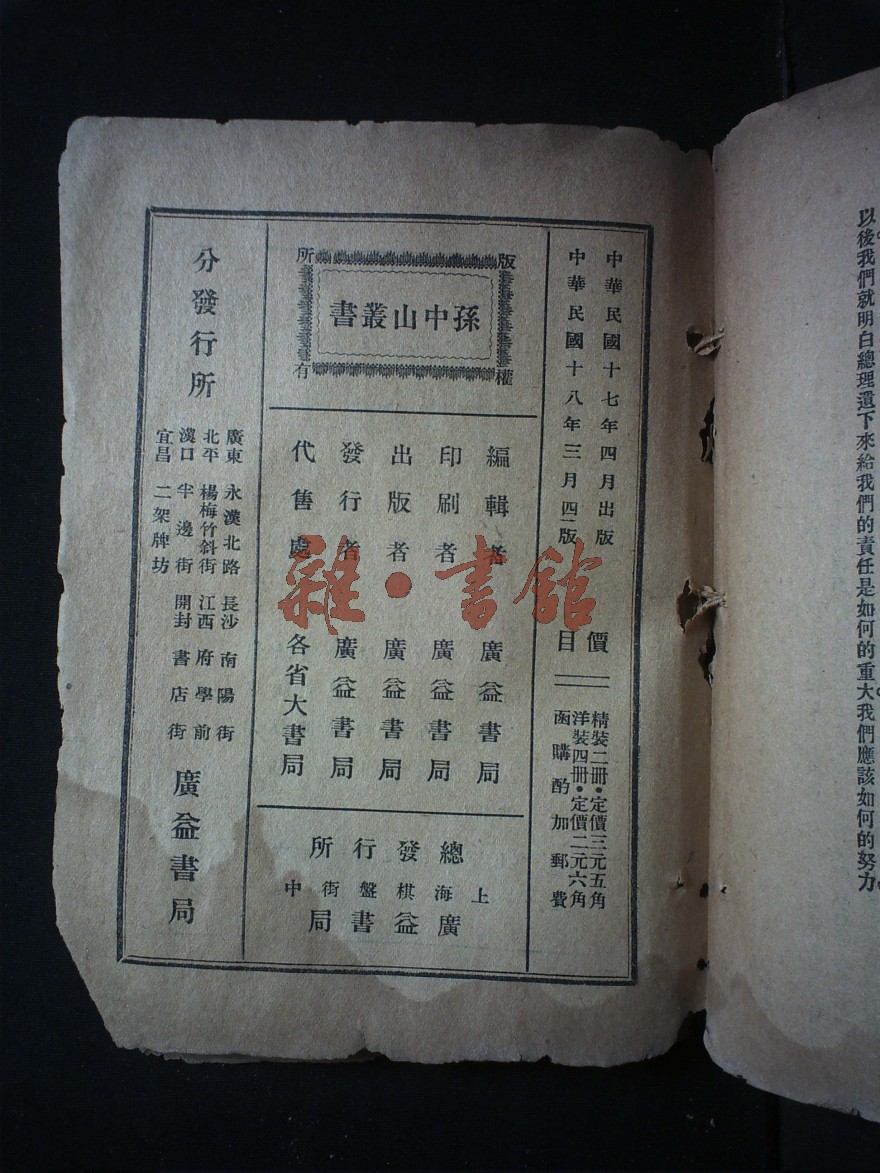 以後我們就明白總理遺下來給我們的責任是如何的重大我們應該如何的努力
中華民國十七年四月出版
中華民國十八年三月四版
價目
精裝二冊·定價三元五角
洋裝四冊·定價二元六角
函購酌加郵費
版權所有
孫中山叢書
編輯者 廣益書局
印刷者 廣益書局
出版者 廣益書局
發行者 廣益書局
代售處 各省大書局
總發行所
上海棋盤街中
廣益書局
分發行所
廣東 永漢北路 長沙 南陽街
北平 楊梅竹斜街 江西 府學前
漢口 半邊街 開封 書店街
宜昌 二架牌坊
廣益書局
雜·書館